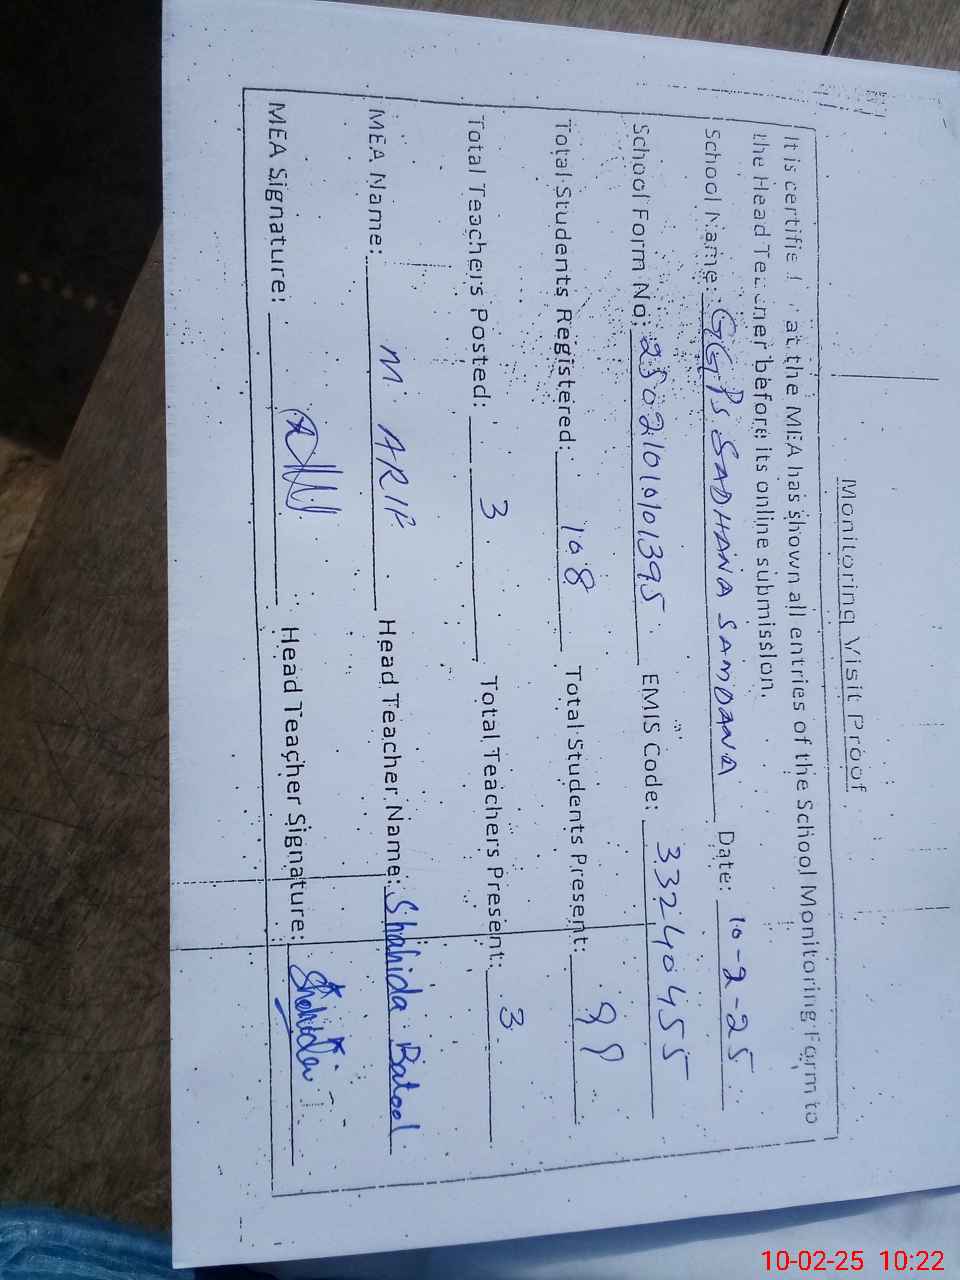 Monitoring Visit Proof
It is certified that the MEA has shown all entries of the School Monitoring Form to
the Head Teacher before its online submission.
School Name: GGPS SADHANA SAMDANA Date: 10-2-25
School Form No: 25021010101395 EMIS Code: 33240455
Total Students Registered: 108 Total Students Present: 99
Total Teachers Posted: 3 Total Teachers Present: 3
MEA Name: M. ARIF Head Teacher Name: Shahida Batool
MEA Signature: Head Teacher Signature: Shahida
10-02-25 10:22